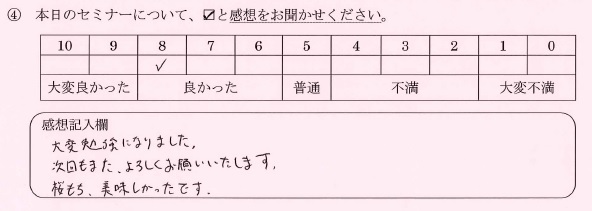 ④ 本日のセミナーについて、☑と感想をお聞かせください。
10 9 8 7 6 5 4 3 2 1 0
✓
大変良かった 良かった 普通 不満 大変不満
感想記入欄
大変勉強になりました。
次回もまた、よろしくお願いいたします。
桜もち、美味しかったです.